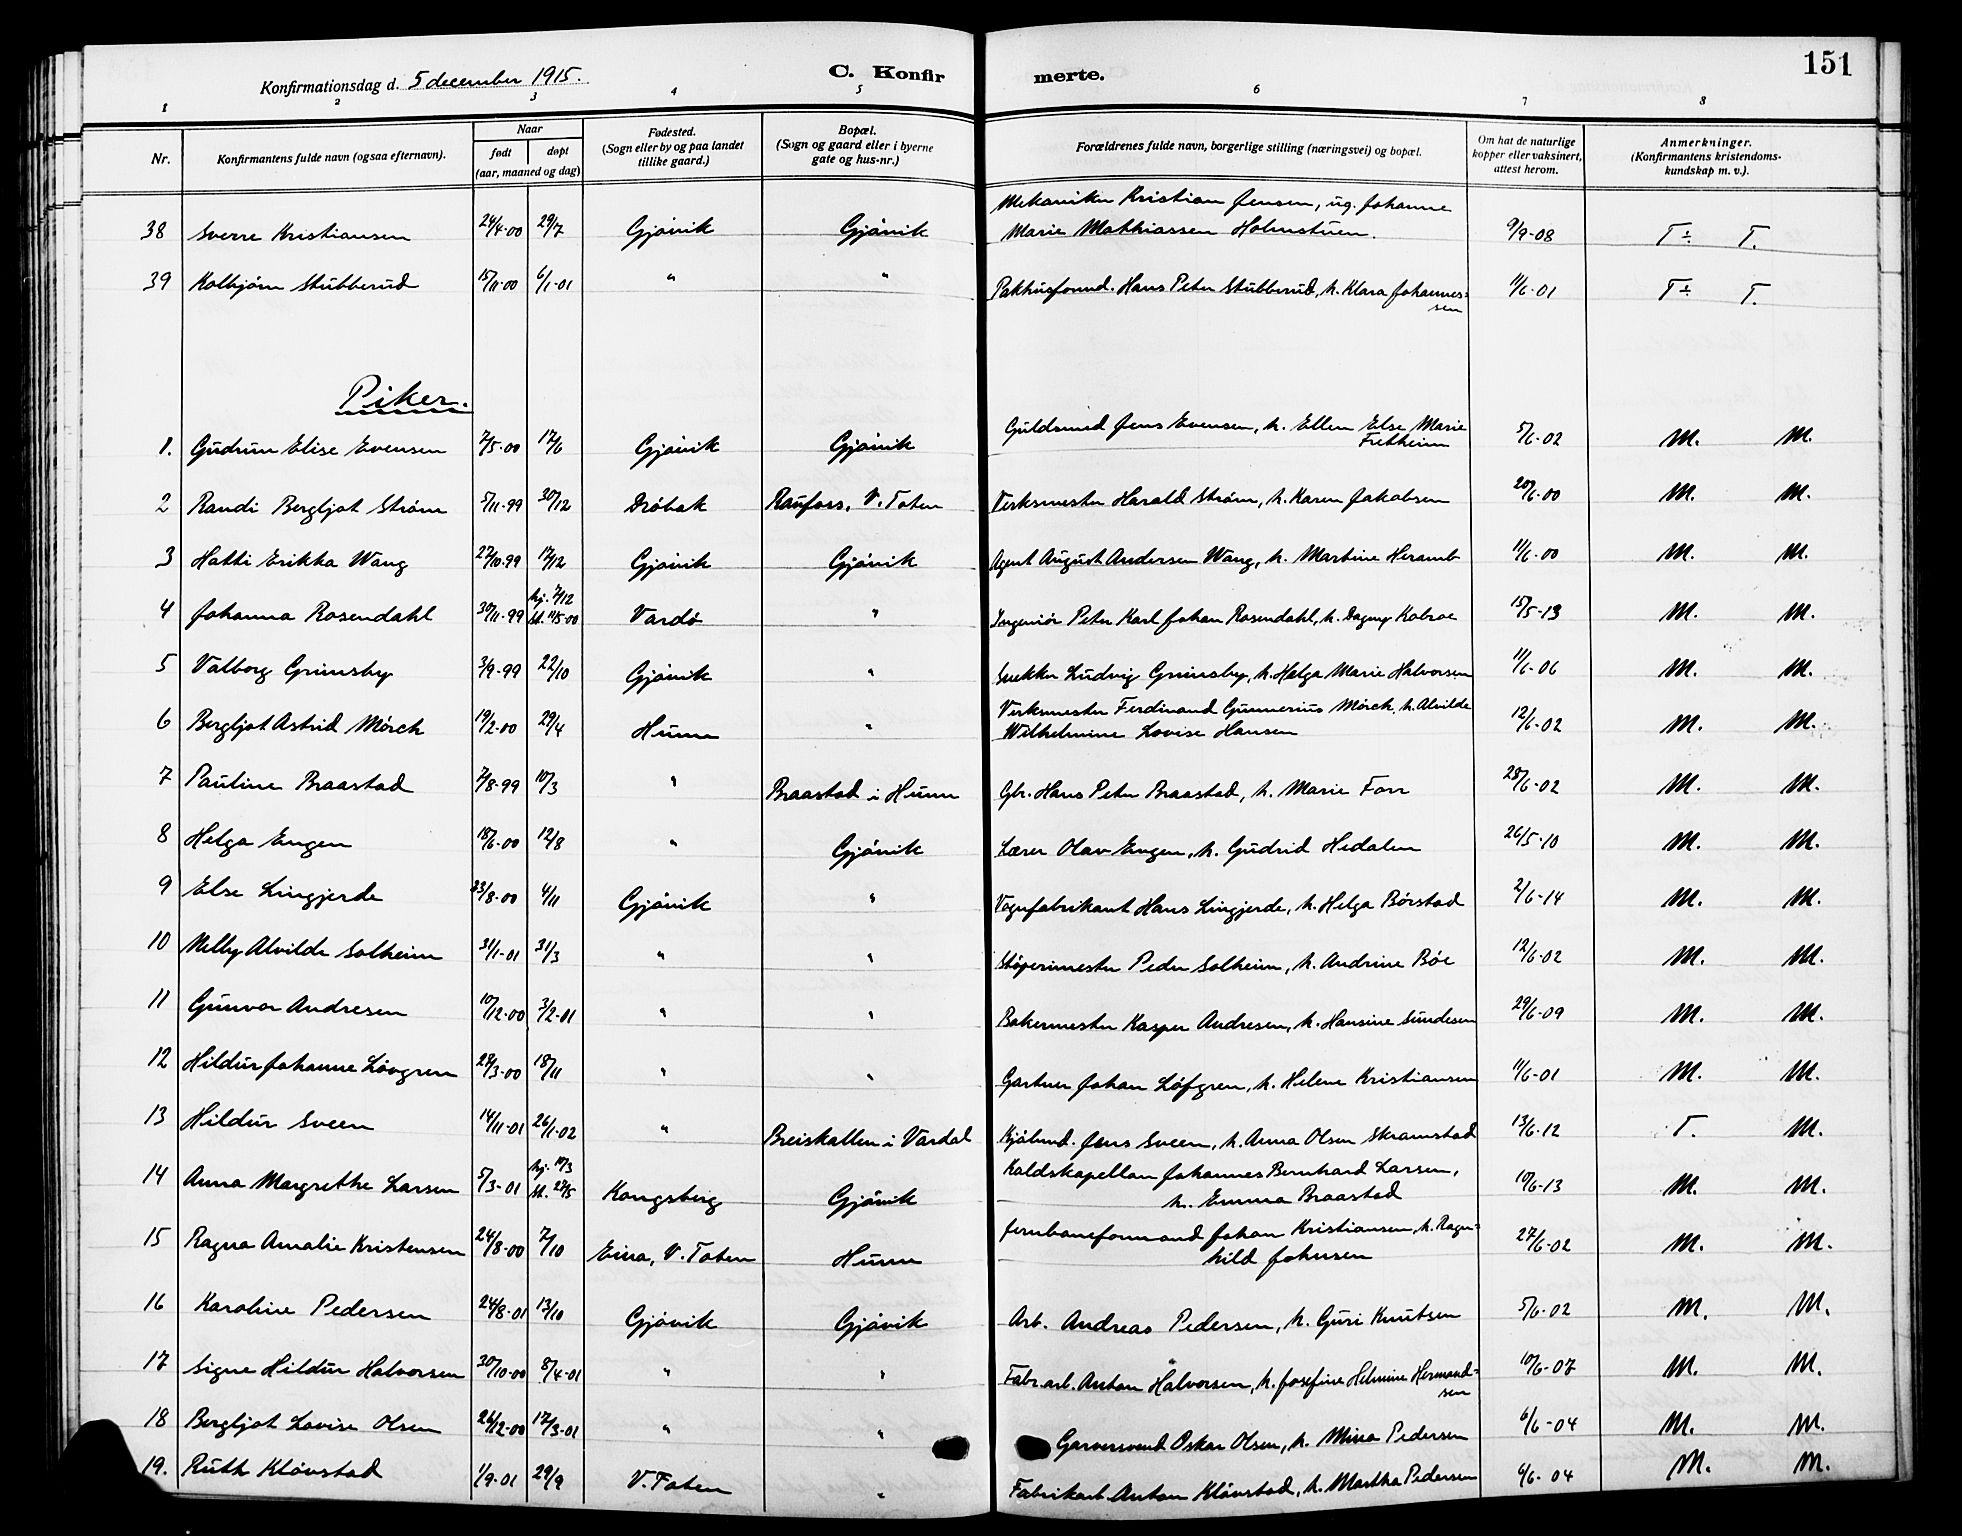 151
Konfirmationsdag d. 5 december 1915.
C. Konfir merte.
1 2 3 4 5 6 7 8
Nr. Konfirmantens fulde navn (ogsaa efternavn). Naar født døpt (aar, maaned og dag) Fødested. (Sogn eller by og paa landet tillike gaard.) Bopæl. (Sogn og gaard eller i byerne gate og hus-nr.) Forældrenes fulde navn, borgerlige stilling (næringsvei) og bopæl. Om hat de naturlige kopper eller vaksinert, attest herom. Anmerkninger. (Konfirmantens kristendoms-kundskap m. v.).
Mekaniker Kristian Jensen, ug. Johanne
38 Sverre Kristiansen 24/4-00 29/7 Gjøvik Gjøvik Marie Mathiassen Holmstuen. 9/9-08 T÷ T.
39 Kolbjørn Stubberud 15/11-00 6/1-01 " " Pakhusformd. Hans Peter Stubberud, h. Klara Johannes-
sen 11/6-01 T÷ T.
Piker.
1. Gudrun Elise Evensen 7/5-00 17/6 Gjøvik Gjøvik Guldsmed Jens Evensen, h. Ellen Else Marie
Fretheim 5/6-02 M. M.
2 Randi Bergljot Strøm 5/11-99 30/12 Drøbak Raufoss, V. Toten Verksmester Harald Strøm, h. Karen Jakobsen 20/6-00 M. M.
3 Hatti Erikka Wang 27/10-99 17/12 Gjøvik Gjøvik Agent August Andersen Wang, h. Martine Heramb 11/6-00 M. M.
4 Johanna Rosendahl 30/11-99 hj. 7/12 st. 11/5-00 Vardø " Ingeniør Peter Karl Johan Rosendahl, h. Dagny Kobroe 15/5-13 M. M.
5 Valborg Grimsby 3/9-99 22/10 Gjøvik " Snekker Ludvig Grimsby, h. Helga Marie Halvorsen 11/6-06 M. M.
6 Bergljot Astrid Mørch 19/2-00 29/4 Hunn " Verksmester Ferdinand Gunnerius Mørch, h. Alvilde
Wilhelmine Lovise Hansen 12/6-02 M. M.
7 Pauline Braastad 7/8-99 10/3 " Braastad i Hunn Gbr. Hans Peter Braastad, h. Marie Forr 28/6-02 M. M.
8 Helga Engen 18/6-00 12/8 " Gjøvik Lærer Olav Engen, h. Gudrid Hedalen 26/5-10 M. M.
9 Else Lingjerde 23/8-00 4/11 Gjøvik " Vognfabrikant Hans Lingjerde, h. Helga Børstad 2/6-14 M. M.
10 Melby Alvilde Solheim 31/1-01 31/3 " " Støperimester Peder Solheim, h. Andrine Bøe 12/6-02 M. M.
11 Gunvor Andresen 10/12-00 3/2-01 " " Bakermester Kasper Andresen, h. Hansine Sundesen 29/6-09 M. M.
12 Hildur Johanne Løvgren 28/3-00 18/11 " " Gartner Johan Løfgren, h. Helene Kristiansen 11/6-01 M. M.
13 Hildur Sveen 14/11-01 26/1-02 " Breiskallen i Vardal Kjøbmd. Jens Sveen, h. Anna Olsen Skramstad 13/6-12 T. M.
14 Anna Margrethe Larsen 5/3-01 hj. 17/3 st. 27/5 Kongsberg Gjøvik Kaldskapellan Johannes Bernhard Larsen,
h. Emma Braastad 10/6-13 M. M.
15 Ragna Amalie Kristensen 24/8-00 7/10 Eina, V. Toten Hunn Jernbaneformand Johan Kristiansen, h. Ragn-
hild Johnsen 27/6-02 M. M.
16 Karoline Pedersen 24/8-01 13/10 Gjøvik Gjøvik Arb. Andreas Pedersen, h. Guri Knutsen 5/6-02 M. M.
17 Signe Hildur Halvorsen 30/10-00 8/4-01 " " Fabr. arb. Anton Halvorsen, h. Josefine Helmine Hermand-
sen 10/6-07 M. M.
18 Bergljot Lovise Olsen 26/12-00 17/3-01 " " Garversvend Oskar Olsen, h. Mina Pedersen 6/6-04 M. M.
19. Ruth Kløvstad 1/9-01 29/9 V. Toten " Fabrikarb. Anton Kløvstad, h. Martha Pedersen 6/6-04 M. M.